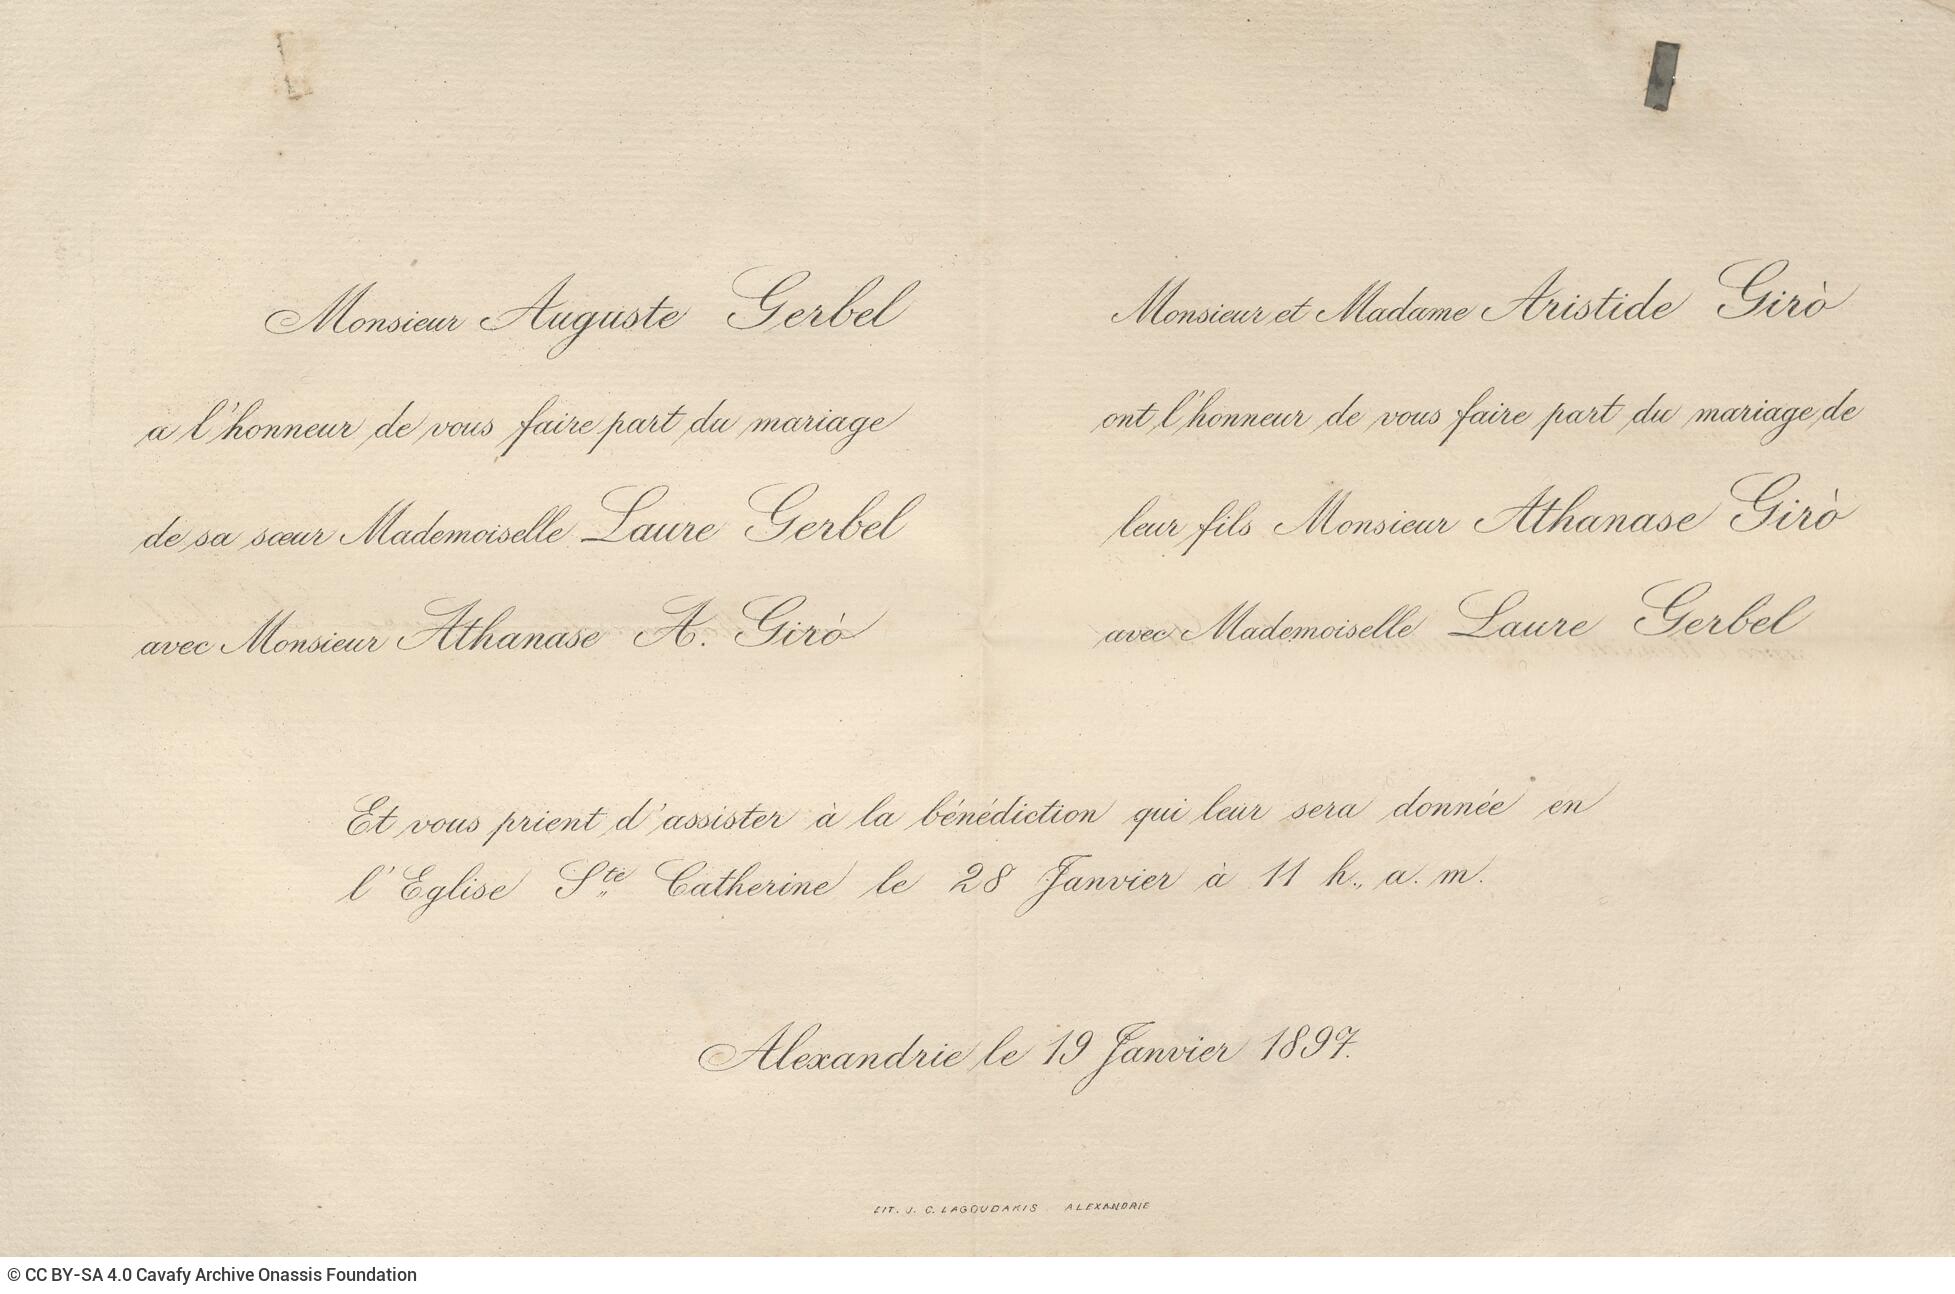 Monsieur Auguste Gerbel
a l'honneur de vous faire part du mariage
de sa sœur Mademoiselle Laure Gerbel
avec Monsieur Athanase A. Girò
Monsieur et Madame Aristide Girò
ont l'honneur de vous faire part du mariage de
leur fils Monsieur Athanase Girò
avec Mademoiselle Laure Gerbel
Et vous prient d'assister à la bénédiction qui leur sera donnée en
l'Eglise Ste Catherine le 28 Janvier à 11 h., a. m.
Alexandrie le 19 Janvier 1897.
LIT. J. C. LAGOUDAKIS ALEXANDRIE
© CC BY-SA 4.0 Cavafy Archive Onassis Foundation